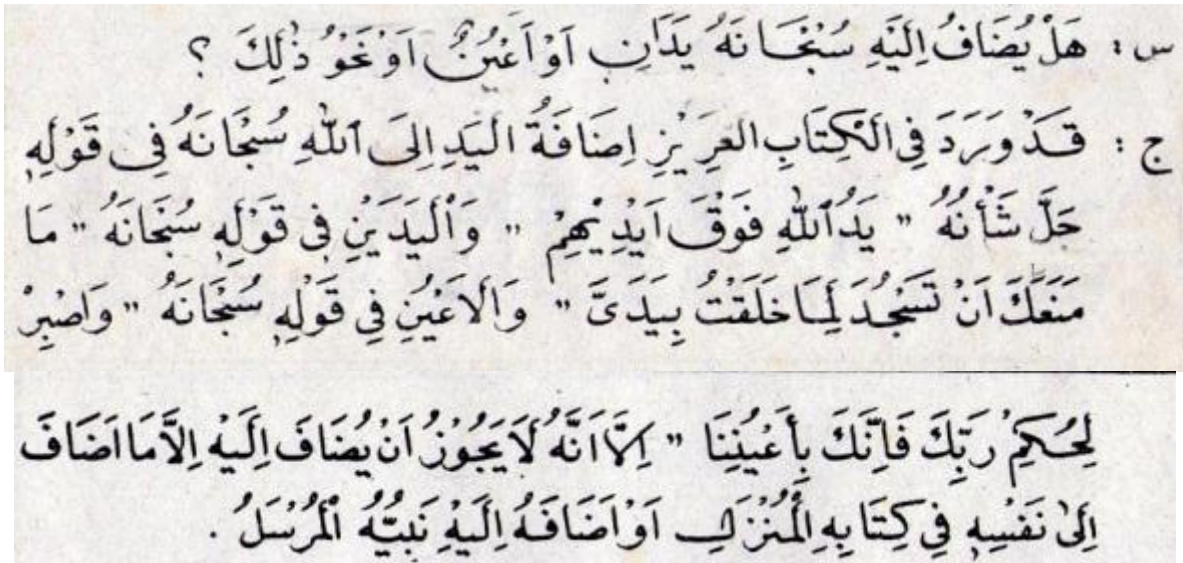 س : هَلْ يُضَافُ اِلَيْهِ سُبْحَانَهُ يَدَانِ اَوْ اَعْيُنٌ اَوْ نَحْوُ ذٰلِكَ ؟
ج : قَدْ وَرَدَ فِي الْكِتَابِ الْعَزِيْزِ اِضَافَةُ الْيَدِ اِلَى اللّٰهِ سُبْحَانَهُ فِي قَوْلِهِ
جَلَّ شَأْنُهُ " يَدُ اللّٰهِ فَوْقَ اَيْدِيْهِمْ " وَالْيَدَيْنِ فِي قَوْلِهِ سُبْحَانَهُ " مَا
مَنَعَكَ اَنْ تَسْجُدَ لِمَا خَلَقْتُ بِيَدَيَّ " وَالْاَعْيُنِ فِي قَوْلِهِ سُبْحَانَهُ " وَاصْبِرْ
لِحُكْمِ رَبِّكَ فَاِنَّكَ بِأَعْيُنِنَا " اِلَّا اَنَّهُ لَا يَجُوْزُ اَنْ يُضَافَ اِلَيْهِ اِلَّا مَا اَضَافَ
اِلَى نَفْسِهِ فِي كِتَابِهِ الْمُنْزَلِ اَوْ اَضَافَهُ اِلَيْهِ نَبِيُّهُ الْمُرْسَلُ .